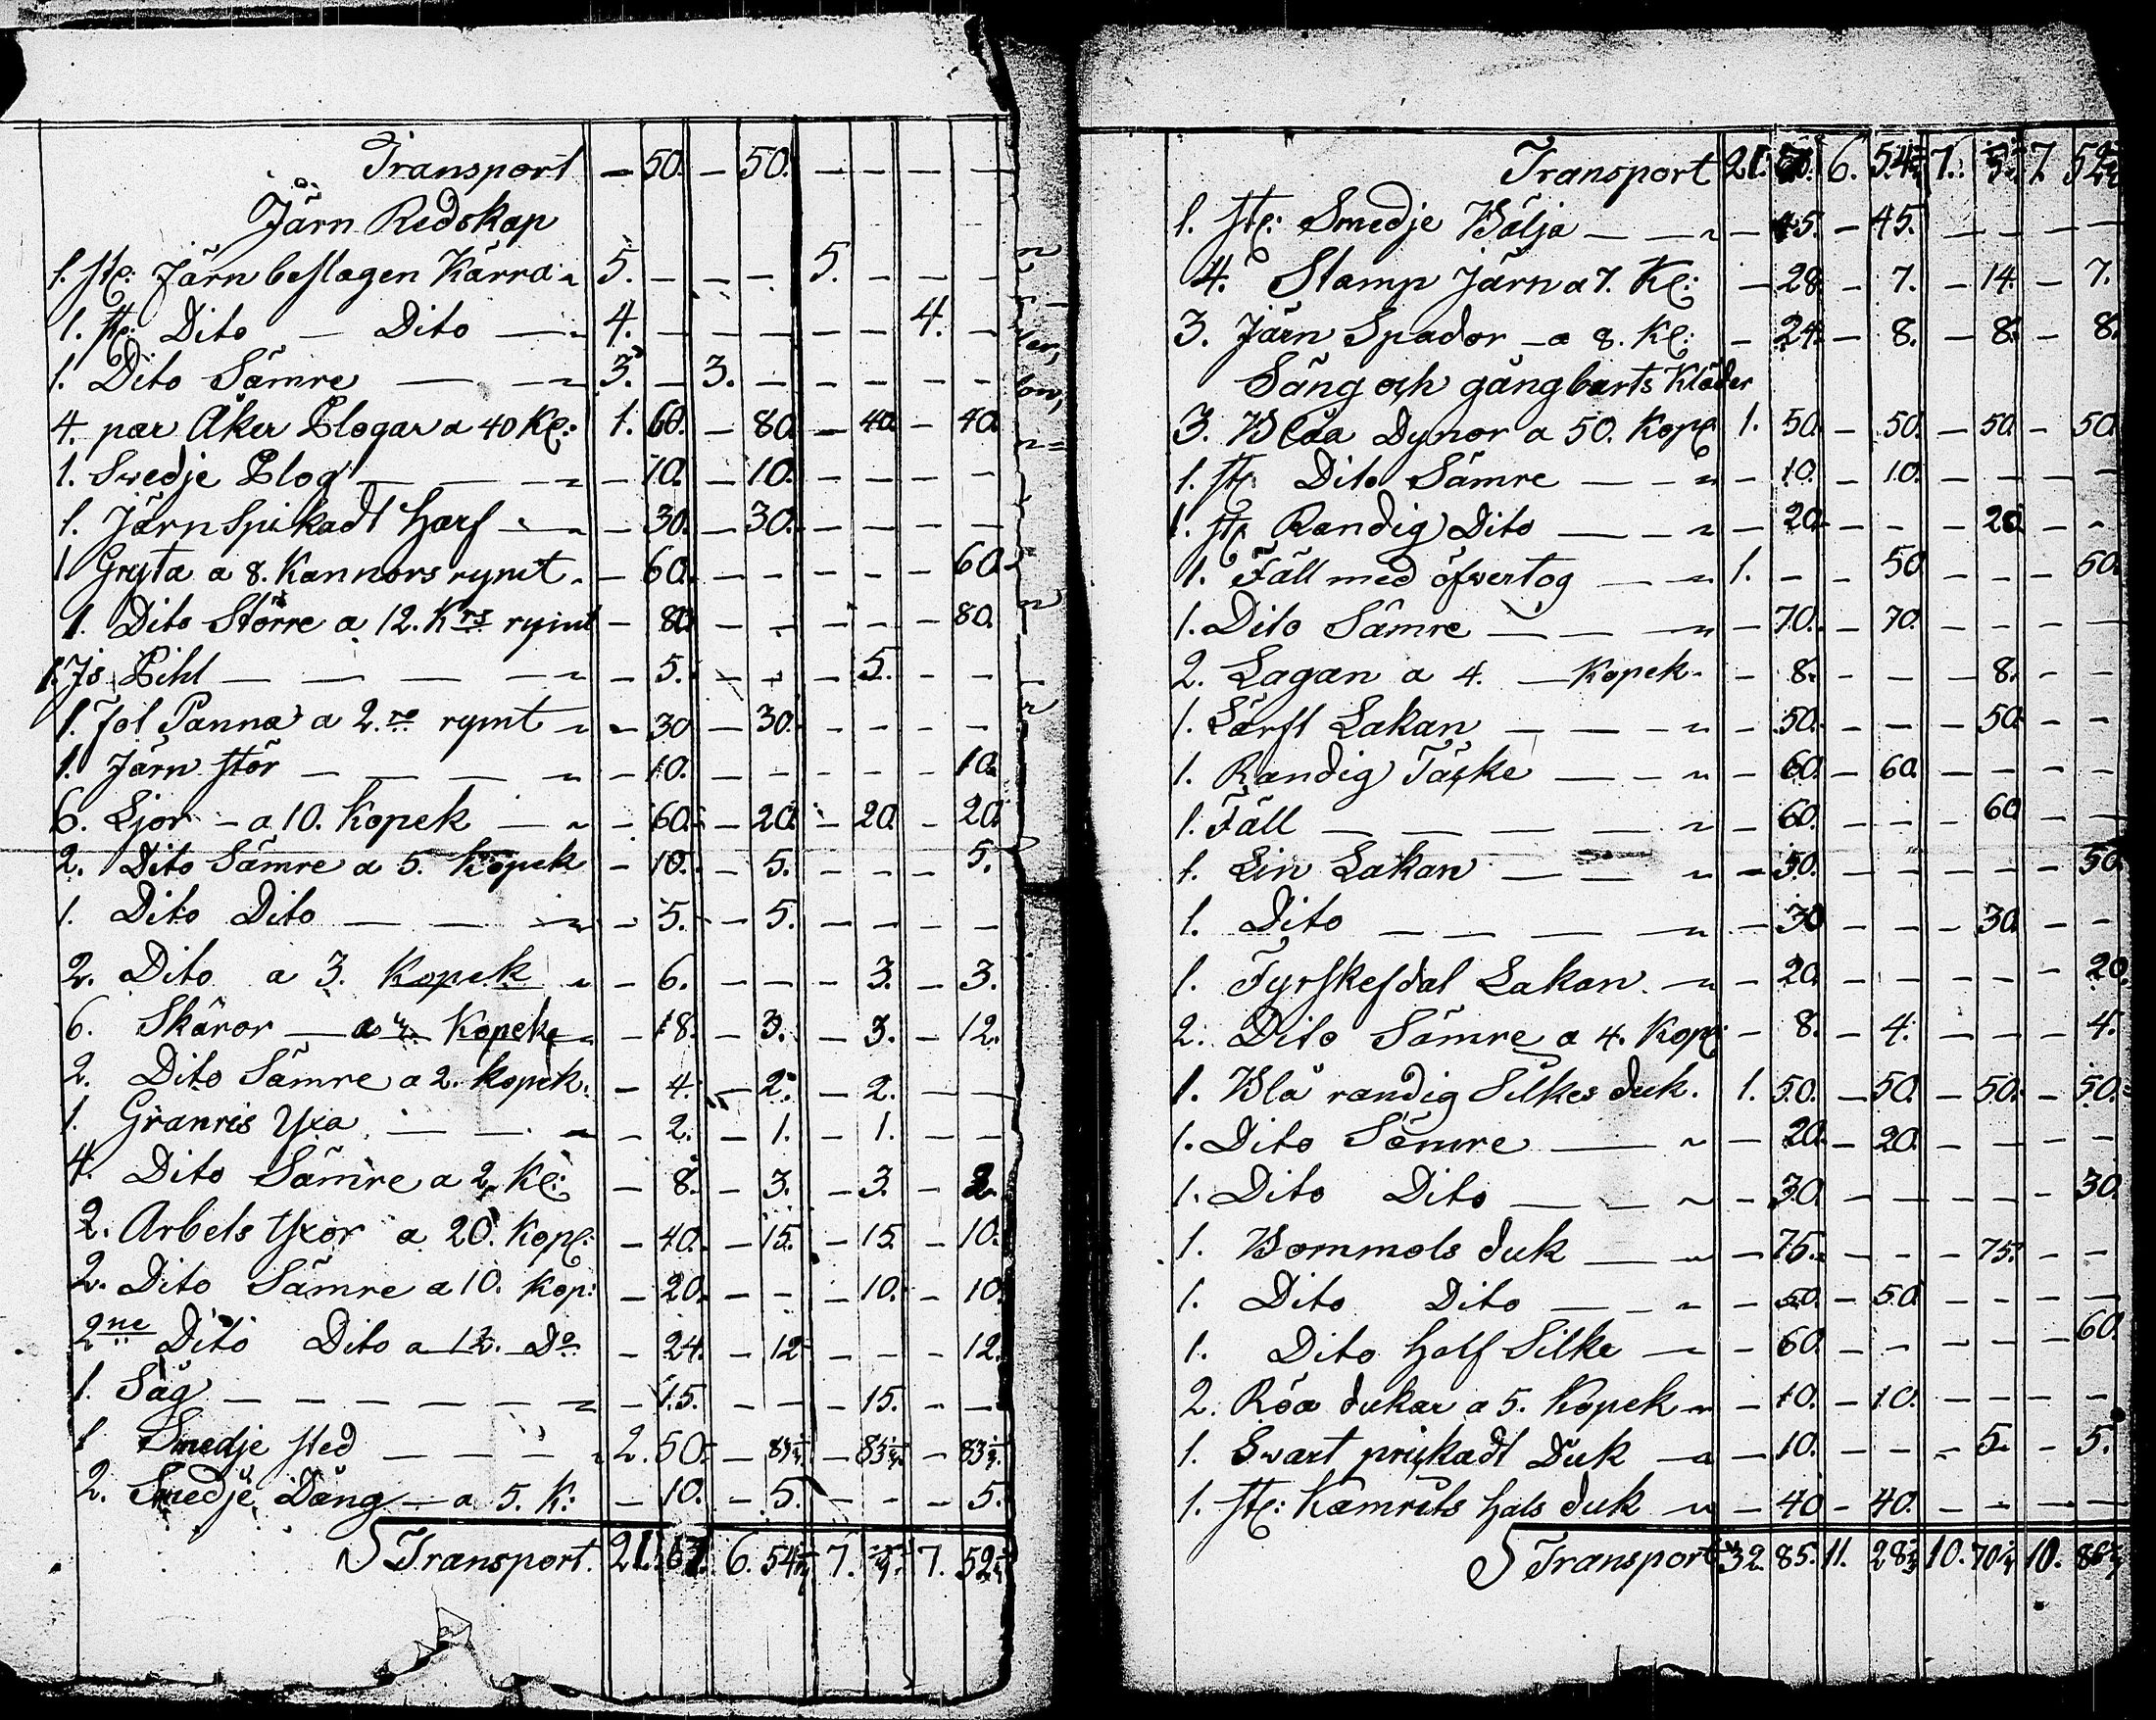 Transport — 50. — 50. — — — —
Järn Redskap
1. st: Järn beslagen Kärra 5. — — — 5. — — —
1. st: Dito — Dito — 4. — — — — — 4. —
1. Dito Sämre — — 3. — 3. — — — — —
4. par Åker Plogar a 40 Kp: 1. 60. — 80. — 40. — 40.
1. Swedje Plog — — — 10. — 10. — — — —
1. Järn Spikadt Harf — — 30. — 30. — — — —
1 Gryta a 8. Kannors rymt. — 60. — — — — — 60.
1. Dito Större a 12. Krs rymt — 80. — — — — — 80.
1. Is Pihl — — — — — 5. — — — 5. — —
1. Jol Panna a 2.ro rymt — 30 — 30. — — — —
1. Järn stör — — — — 10. — — — — — 10.
6. Ljor — a 10. Kopek — — 60. — 20. — 20. — 20.
2. Dito Sämre a 5. Kopek — 10. — 5. — — — 5.
1. Dito Dito — — — 5. — 5. — — — —
2. Dito a 3. Kopek — 6. — — — 3. — 3.
6. Skäror — a Kopek — 18. — 3. — 3. — 12.
2. Dito Sämre a 2. Kopek. — 4. — 2. — 2. — —
1. Granris Yxa — — — 2. — 1. — 1. — —
4. Dito Sämre a 2. Kp: — 8. — 3. — 3. — 2.
2. Arbets Yxor a 20. Kop: — 40. — 15. — 15. — 10.
2. Dito Sämre a 10. Kop: — 20. — — — 10. — 10.
2ne Dito Dito a 12. Do — 24. — 12 — — — 12.
1. Såg — — — — — — 15. — — — 15. — —
1 Smedje sted — — — — 2. 50. — 83 — 83 — 83
2. Smedje Dång — a 5. K: — 10. — 5. — — — 5.
S Transport. 21. 67. 6. 54 7. 7. 52
Transport 21. 6. 54 7. 7. 52
1. st: Smedje Bälja — — — 45. — 45. — — — —
4. Stamp Järn a 7. Kp: — 28. — 7. — 14. — 7.
3. Järn Spador — a 8. Kp: — 24. — 8. — 8. — 8.
Säng och gångbarts Kläder
3. Blåa Dynor a 50. Kop 1. 50. — 50. — 50. — 50.
1. st: Dito Sämre — — — 10. — 10. — — — —
1. st: Randig Dito — — — 20. — — — 20. — —
1. Fäll med öfwertog — — 1. — — 50. — — — 50.
1. Dito Sämre — — — 70. — 70. — — — —
2. Lagan a 4. — Kopek — 8. — — — 8. — —
1. Lärft Lakan — — — 50. — — — 50. — —
1. Randig Täcke — — — 60. — 60. — — — —
1. Fäll — — — — — 60. — — — 60 — —
1. Lin Lakan — — — 50. — — — — — 50.
1. Dito — — — — — 30 — — — 30. — —
1. Tyrskefdal Lakan. — — 20. — — — — — 20.
2. Dito Sämre a 4. Kop: — 8. — 4. — — — 4.
1. Blå randig Silkes duk. 1. 50. — 50. — 50. — 50.
1. Dito Sämre — — — 20. — 20. — — — —
1. Dito Dito — — — 30. — — — — — 30.
1. Bommols duk — — — 75. — — — 75. — —
1. Dito Dito — — — 50. — 50. — — — —
1. Dito Half Silke — — 60. — — — — — 60.
2. Röa dukar a 5. Kopek — 10. — 10. — — — —
1. Swart prickadt Duk — — 10. — — — 5. — 5.
1. st: Kamrits Hals duk — — 40 — 40. — — — —
S Transport 32. 85. 11. 28 10. 70 10. 86